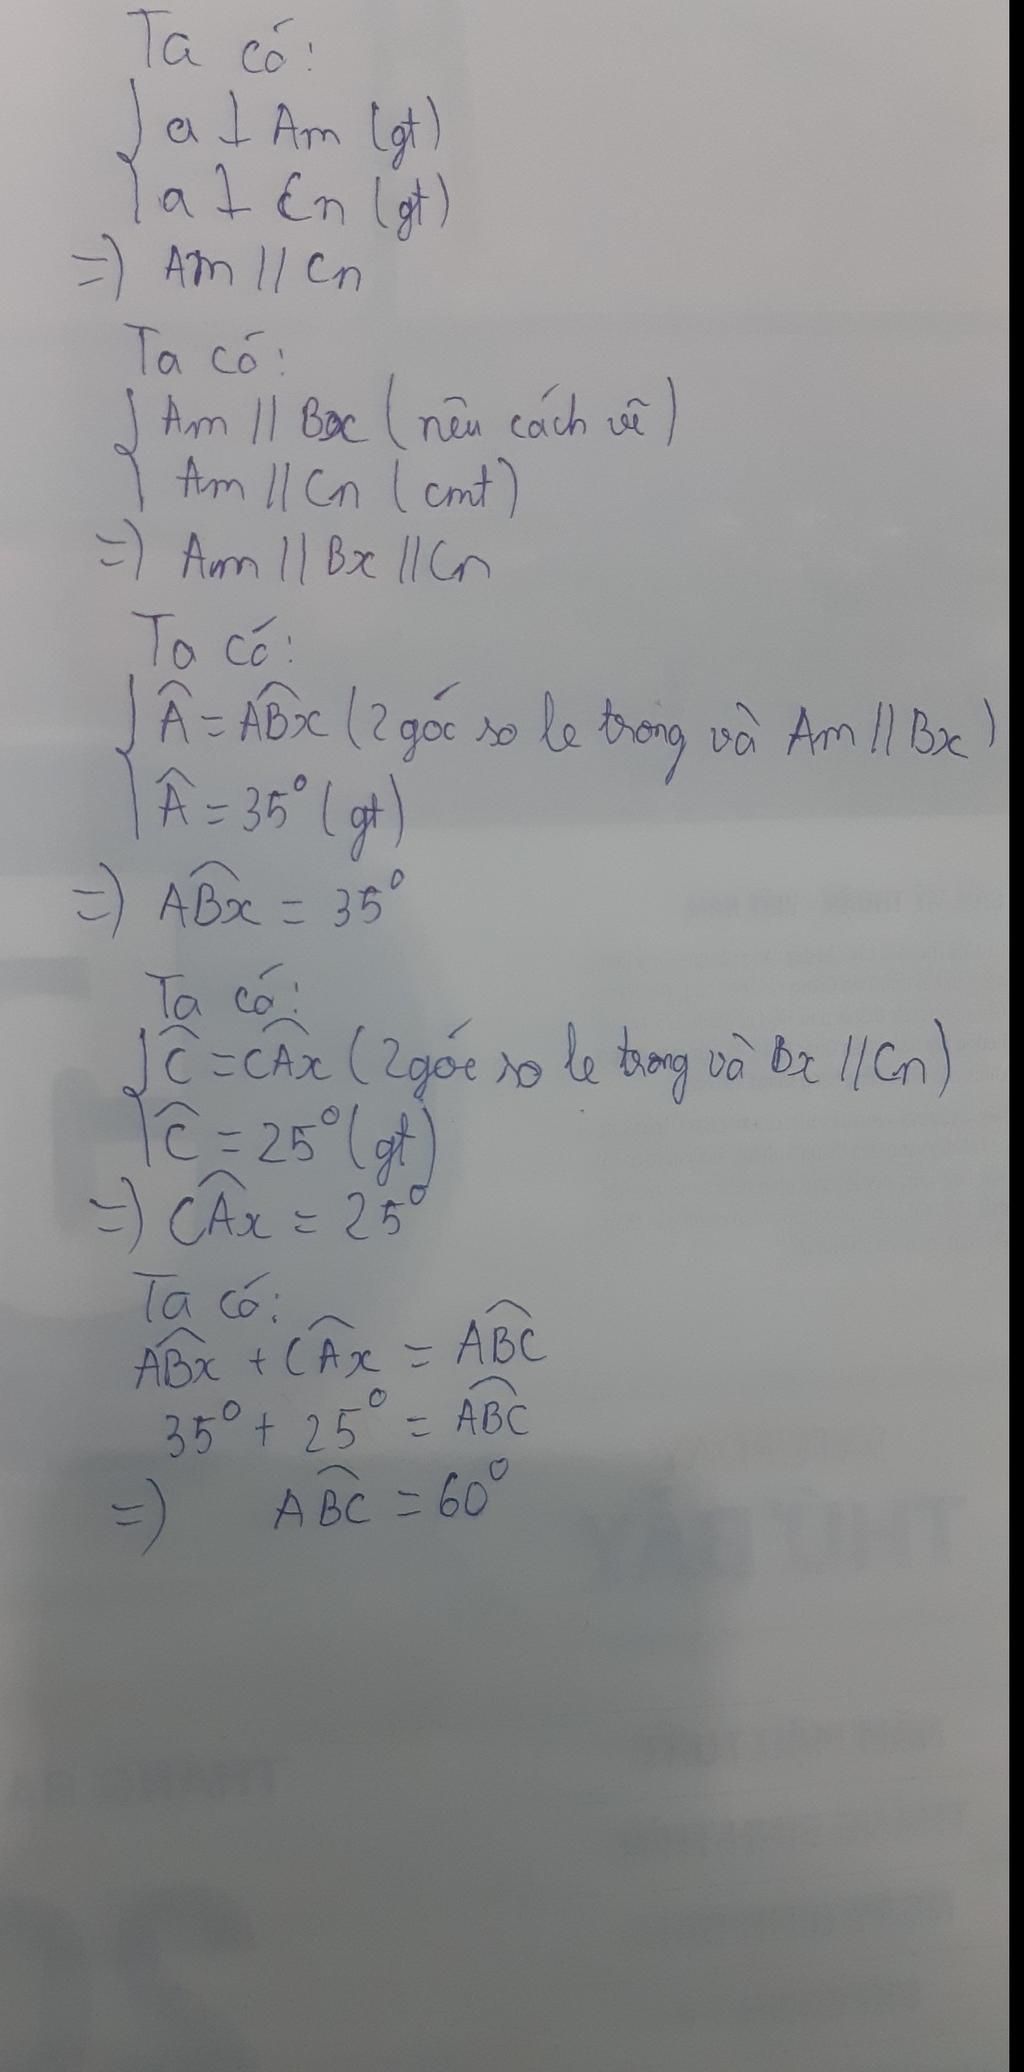 Ta có:
a ⊥ Am (gt)
a ⊥ Cn (gt)
=) Am // Cn
Ta có:
Am // Bx (nêu cách vẽ)
Am // Cn (cmt)
=) Am // Bx // Cn
Ta có:
Â = ABx (2 góc so le trong và Am // Bx)
Â = 35° (gt)
=) ABx = 35°
Ta có:
Ĉ = CAx (2 góc so le trong và Bx // Cn)
Ĉ = 25° (gt)
=) CAx = 25°
Ta có:
ABx + CAx = ABC
35° + 25° = ABC
=) ABC = 60°